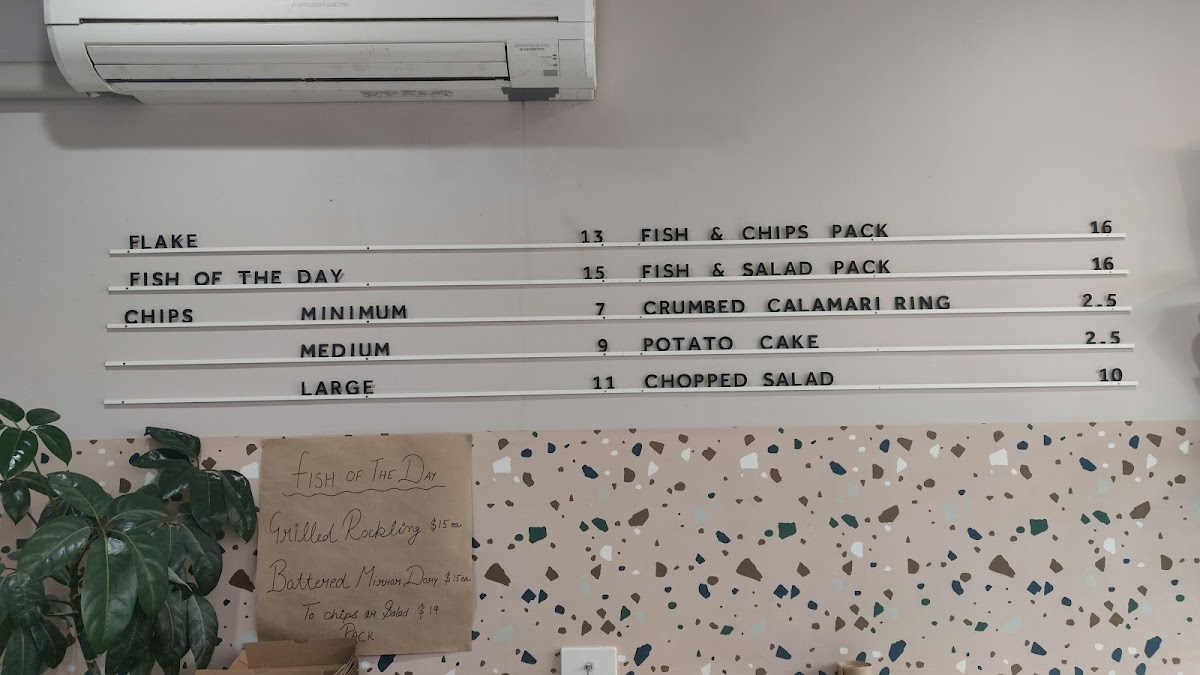 MITSUBISHI ELECTRIC
FLAKE 13
FISH OF THE DAY 15
CHIPS MINIMUM 7
MEDIUM 9
LARGE 11
FISH & CHIPS PACK 16
FISH & SALAD PACK 16
CRUMBED CALAMARI RING 2.5
POTATO CAKE 2.5
CHOPPED SALAD 10
FISH OF THE DAY
Grilled Rockling $15 ea
Battered Mirror Dory $15 ea
To chips or Salad $19
PACK